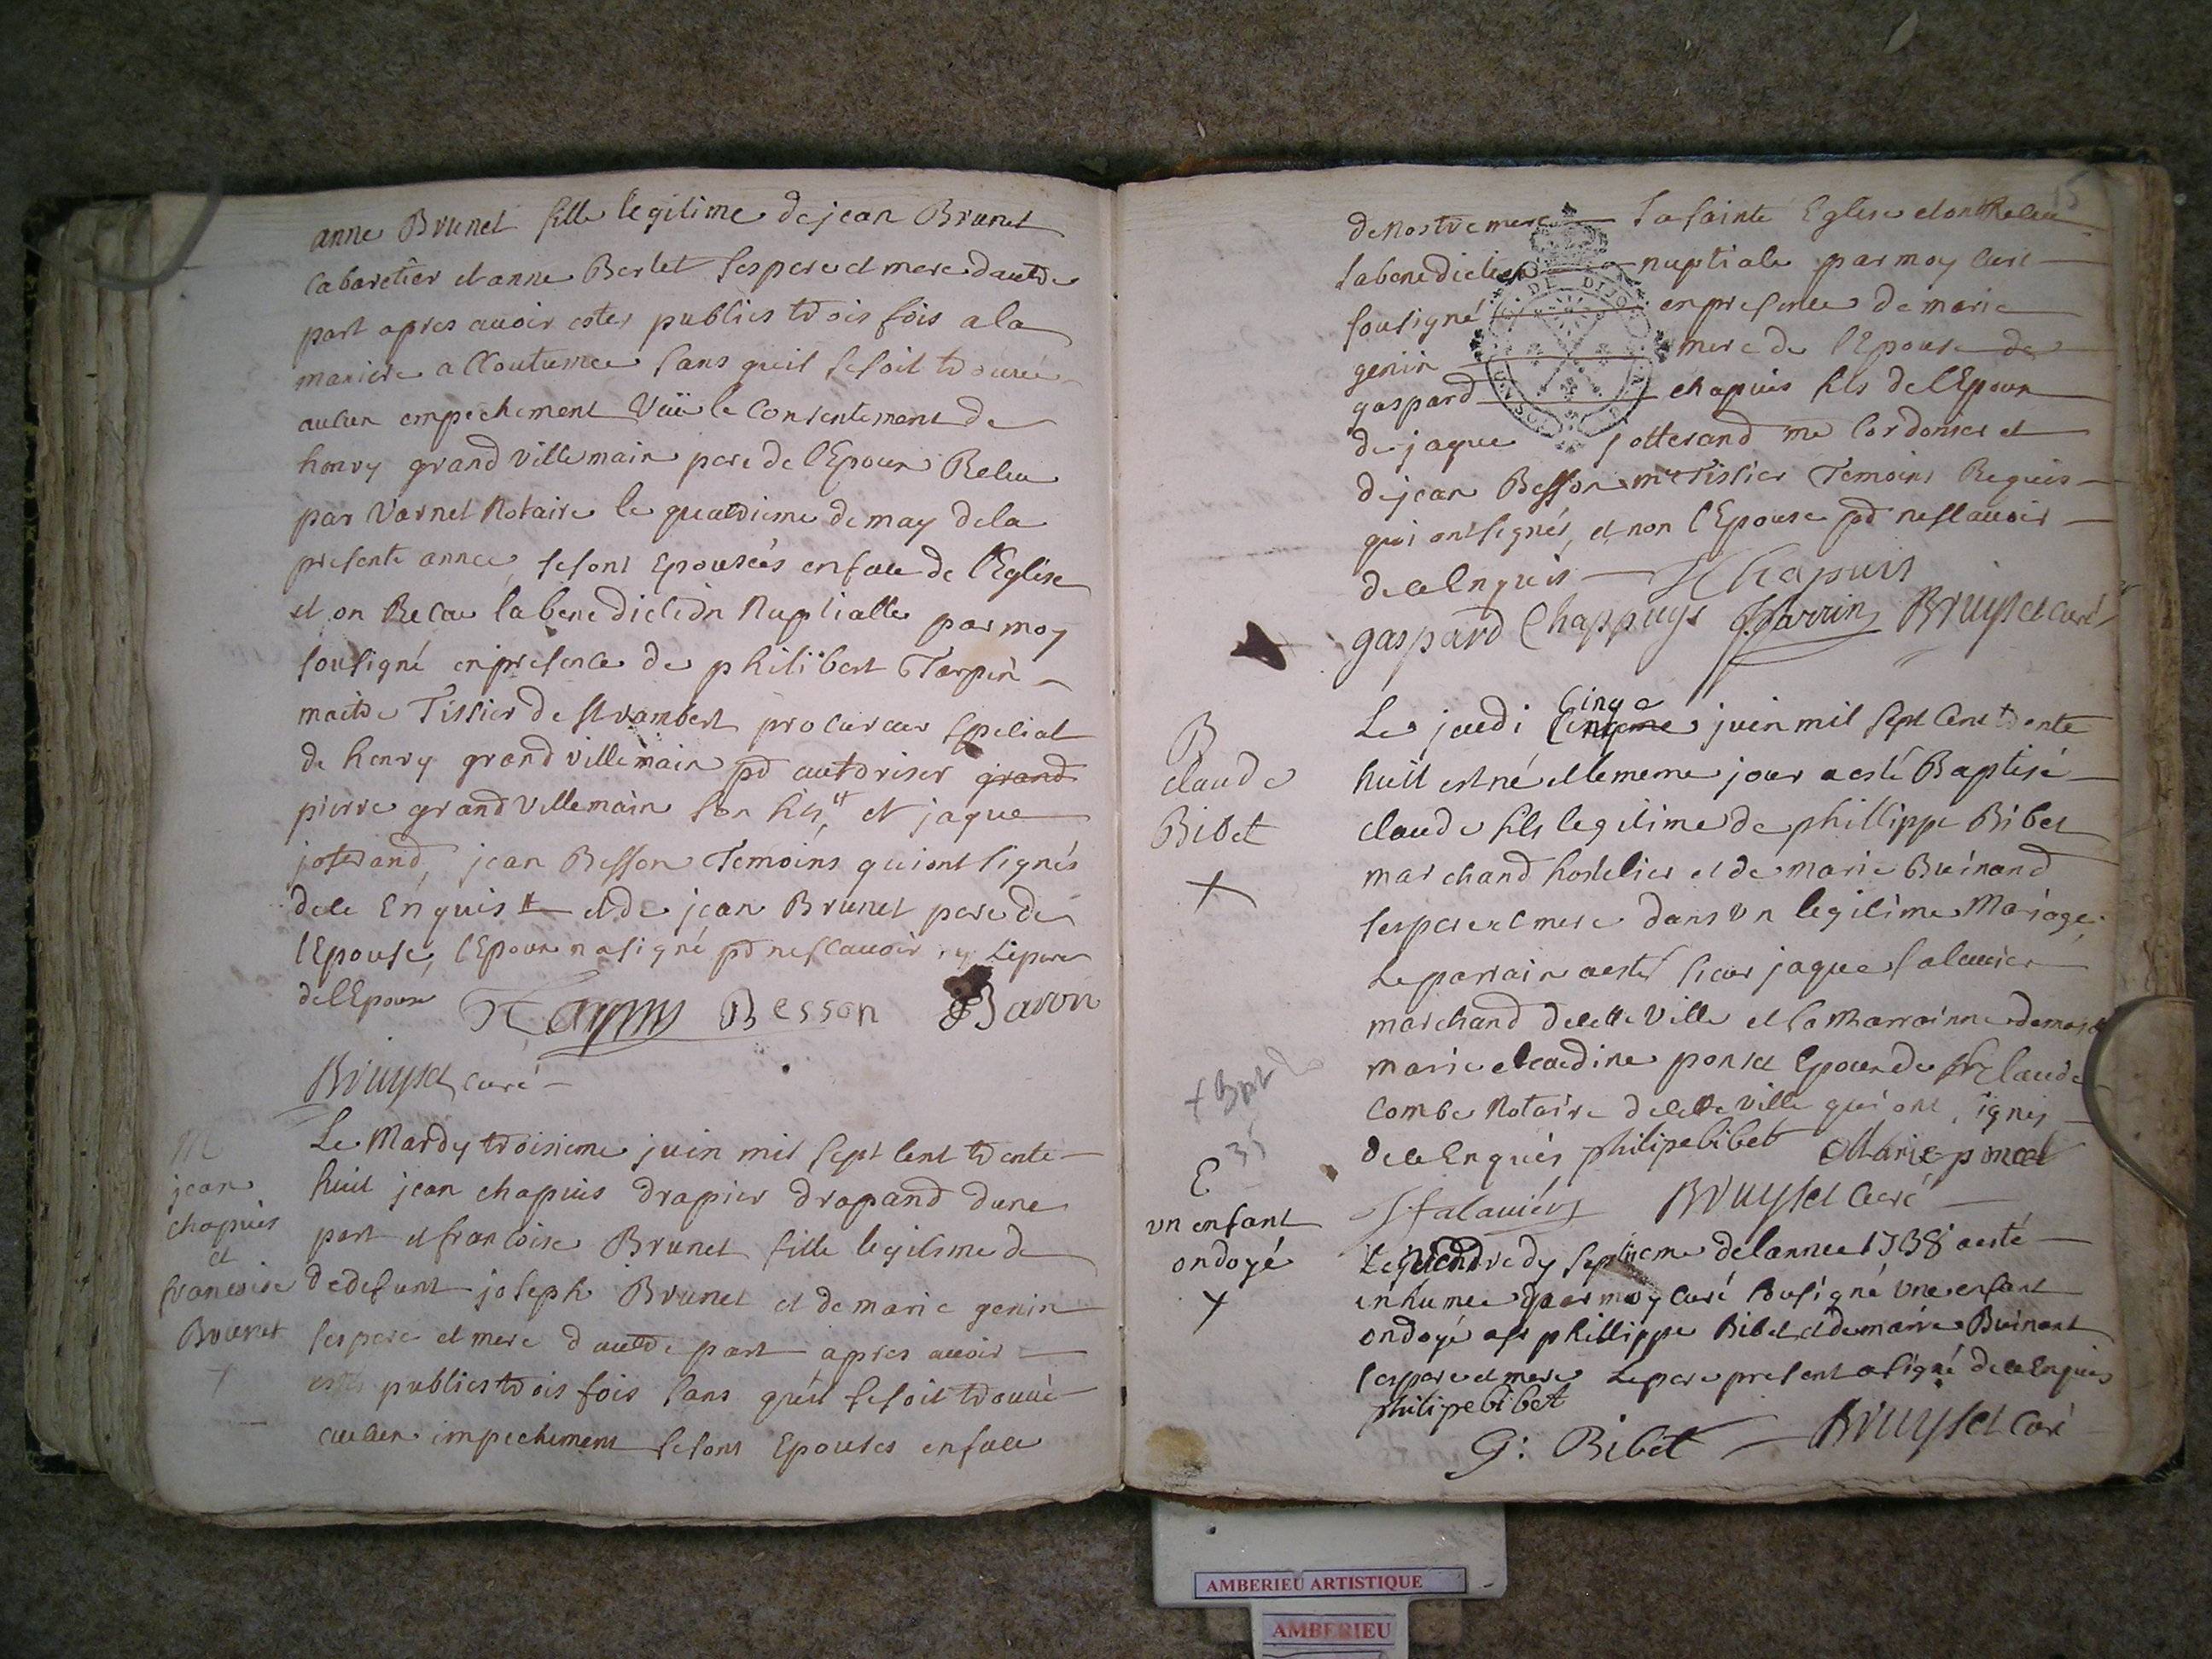 anne Brunet fille legitime de jean Brunet
Cabaretier et anne Berlet ses pere et mere dautre
part apres avoir estes publies trois fois a la
maniere accoutumee sans queil se soit trouvé
aucun empechement Vuü le Consentement de
henry grand villemain pere de l'Epoux Receu
par Varnet Notaire le quatrieme de may de la
presente annee, se sont Epousées en face de l'Eglise
et on Receu la benediction Nuptialle par moy
sousigné en presence de philibert Tarpin
maitre Tissier de St rambert procureur special
de henry grand villemain pr autoriser grand
pierre grand villemain son fils, et jaque
joterand, jean Besson Temoins qui ont signés
de ce Enquis et de jean Brunet pere de
l'Epouse, l'Epoux n a signé pr ne scavoir ny Le pere
de l'Epoux Besson Baron
Bruyset curé
M
jean
chapuis
et
francoise
Brunet
+
Le Mardy troisieme juin mil sept cent trente
huit jean chapuis drapier drapand dune
part et francoise Brunet fille legitime de
de defunt joseph Brunet et de marie genin
ses pere et mere dautre part apres avoir
estes publies trois fois sans queil se soit trouvé
aucun impechement se sont Epouses en face
15
de Nostre mere La sainte Eglise et ont Receu
La benediction nuptiale par moy Curé
sousigné en presence de marie
genin mere de l'Epouse de
gaspard chapuis fils de l'Epoux
de jaque jotterand me Cordonier et
de jean Besson me Tissier Temoins Requis
qui ont signés, et non l'Epouse pr ne scavoir
de ce Enquis J Chapuis
gaspard Chappuys Bruyset curé
B
claude
Bibet
+
Le jeudi Cinq juin mil sept Cent trente
huit est né et le meme jour a esté Baptisé
claude fils legitime de phillippe Bibet
marchand hostelier et de marie Buinand
ses pere et mere dans un legitime Mariage
Le parrain a esté sieur jaque falavier
marchand de cette ville et La Marrainne
marie claudine poncet Epouse de Sr Claude
Combe Notaire de cette ville qui ont signes
de ce Enquis philipe bibet Marie poncet
J falavier Bruyset Curé
35
E
un enfant
ondoyé
+
Le vendredy septieme de lannee 1738 a esté
inhumee par moy curé sousigné une enfant
ondoyé a phillippe Bibet et de marie Buinant
ses pere et mere Le pere present a signé de ce Enquis
philipe bibet
G: Bibet Bruyset Curé
AMBERIEU ARTISTIQUE
AMBERIEU